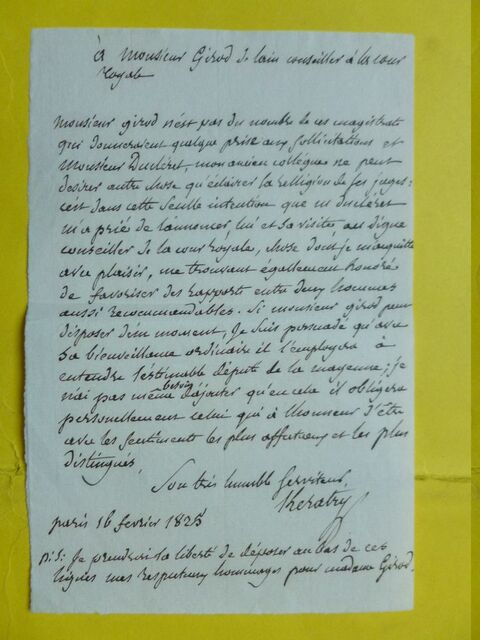 à Monsieur Girod de lain conseiller à la cour
royale
Monsieur girod n'est pas du nombre de ces magistrats
qui donneraient quelque prise aux sollicitations et
Monsieur Ducléret, mon ancien collègue ne peut
desirer autre chose qu'éclairer la relligion de ses juges:
c'est dans cette seule intention que m ducléret
m'a prié de l'annoncer, lui et sa visite, au digne
conseiller de la cour royale, chose dont je m'acquitte
avec plaisir, me trouvant également honoré
de favoriser des rapports entre deux hommes
aussi recommandables. Si monsieur girod peut
disposer d'un moment, je suis persuadé qu'avec
sa bienveillance ordinaire il l'employera à
entendre l'estimable député de la mayenne; je
n'ai pas même besoin d'ajouter qu'en cela il obligera
personnellement celui qui a l'honneur d'être
avec les sentiments les plus affectueux et les plus
distingués,
Son très humble serviteur,
Keratry
paris 16 fevrier 1825
p.s: Je prendrai la liberté de déposer au bas de ces
lignes mes respectueux hommages pour madame Girod.